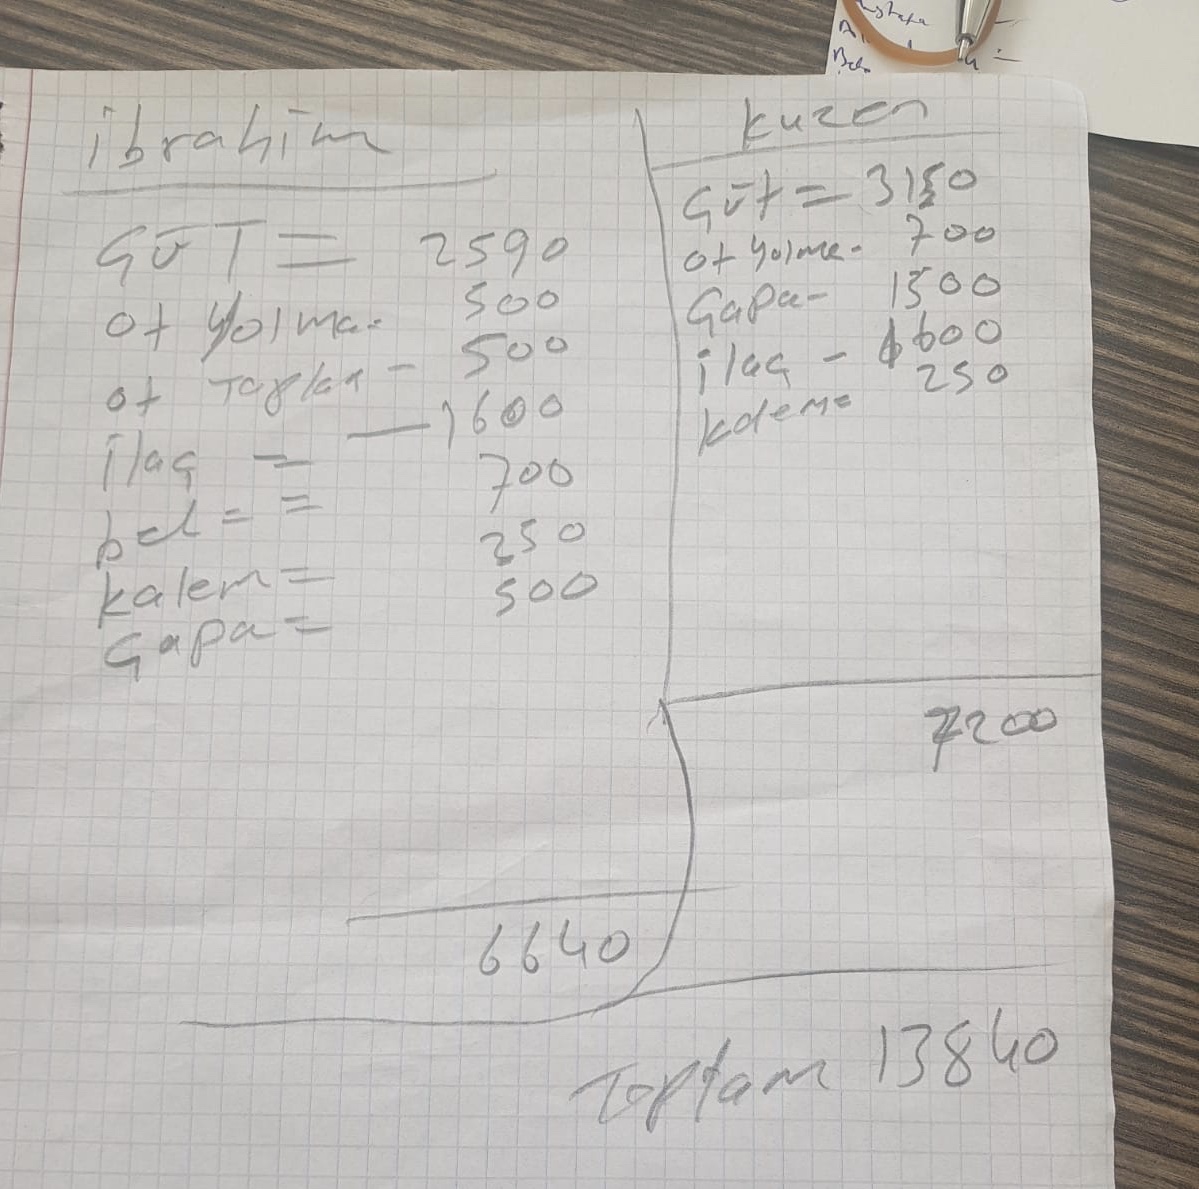 ibrahim
GÜT = 2590
ot yolma - 500
ot Topları - 500
ilaç = — 1600
bel = = 700
kalem = 250
Çapa = 500
6640
kuzen
Güt = 3150
ot yolma - 700
Çapa - 1500
ilaç - 1600
kalem = 250
7200
Toplam 13840